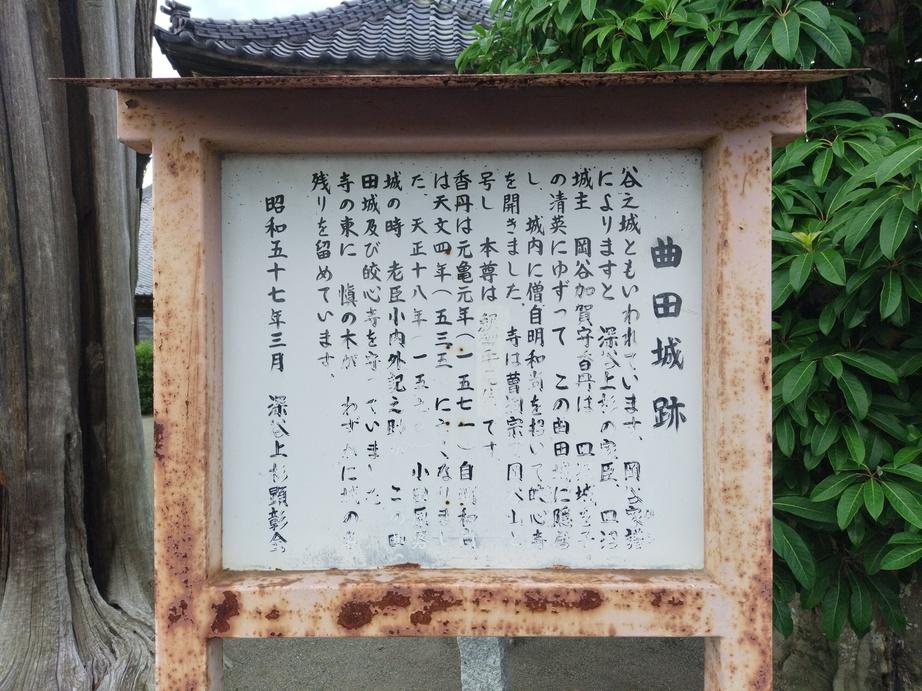 曲田城跡
谷之城ともいわれています。岡谷家譜
によりますと 深谷上杉の家臣 皿沼
城主 岡谷加賀守香丹は 皿沼城を
の清英にゆずって この曲田城に隠居
し 城内に僧自明和尚を招いて皎心寺
を開きました 寺は曹洞宗で 山
号し 本尊は です
香丹は元亀元年(一五七一)自明和尚
は天文四年(一五三五)になくなりまし
た 天正十八年(一五 小田原
城の時 老臣小内外記之助 この曲
田城及び皎心寺を守っていました
寺の東に 愼の木が わずかに城の
残りを留めています
昭和五十七年三月 深谷上杉顕彰会